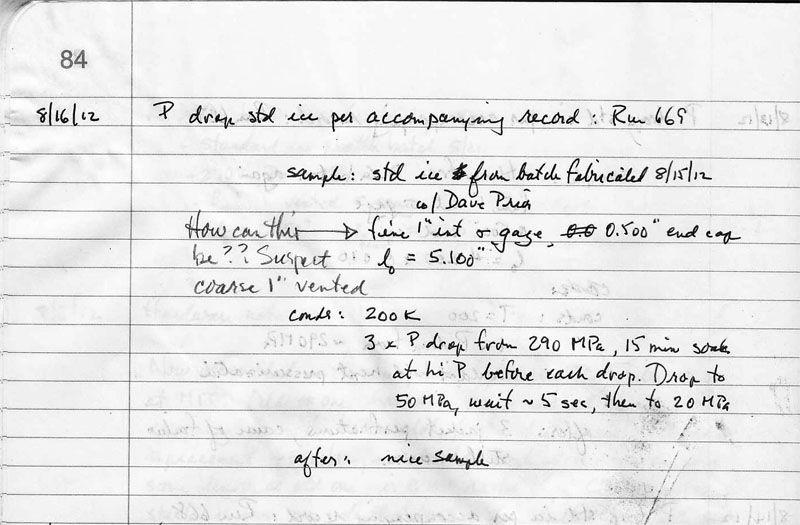 84
8/16/12 P drop std ice per accompanying record : Run 669
sample: std ice from batch fabricated 8/15/12
w/ Dave Prior
How can this → fine 1" int gage, 0.500" end cap
be?? Suspect l₀ = 5.100"
coarse 1" vented
conds: 200 K
3 x P drop from 290 MPa, 15 min soak
at hi P before each drop. Drop to
50 MPa, wait ~ 5 sec, then to 20 MPa
after: nice sample